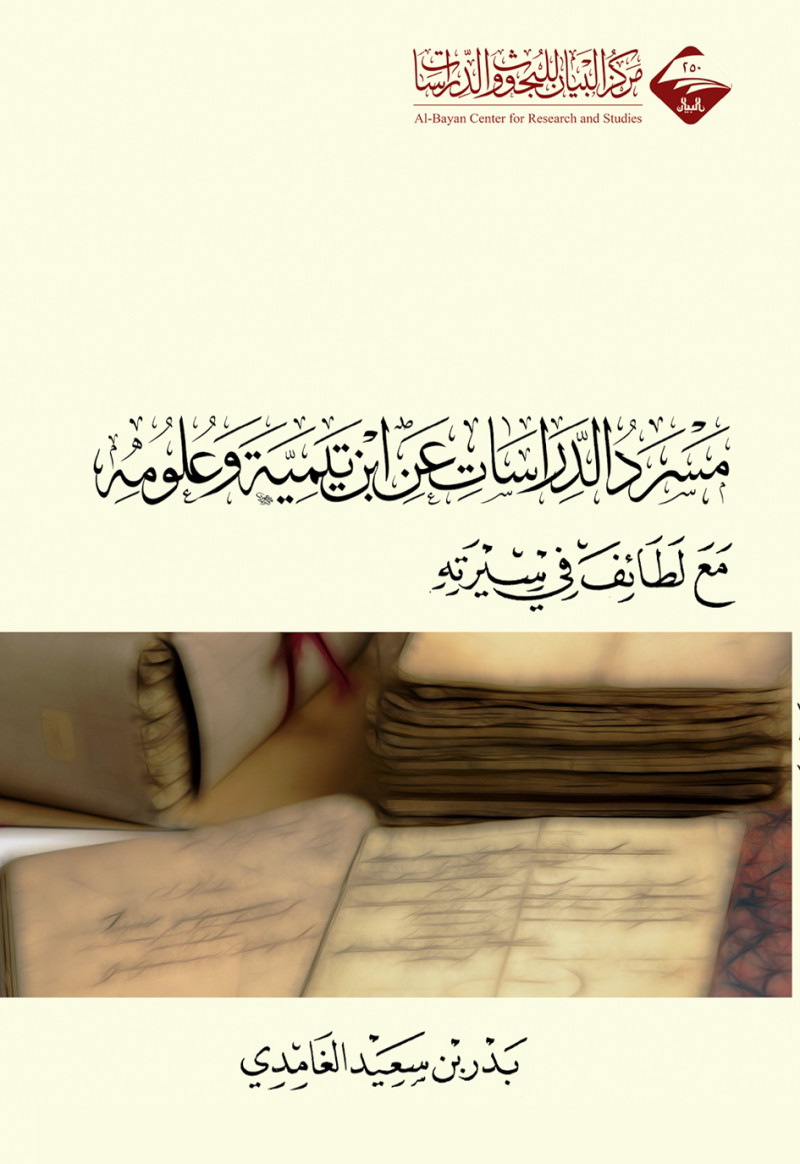 مَركزُ البَيَان للبُحوُث وَالدِّرَاسَات
Al-Bayan Center for Research and Studies
٢٥٠
البيان
مَسْرَدُ الدِّرَاسَاتِ عَنِ ابْنِ تَيمِيَّةَ وَعُلُومُهُ
مَعَ لَطَائِفَ فِي سِيْرَتِهِ
بَدْر بْن سَعِيْد الغَامِدِي